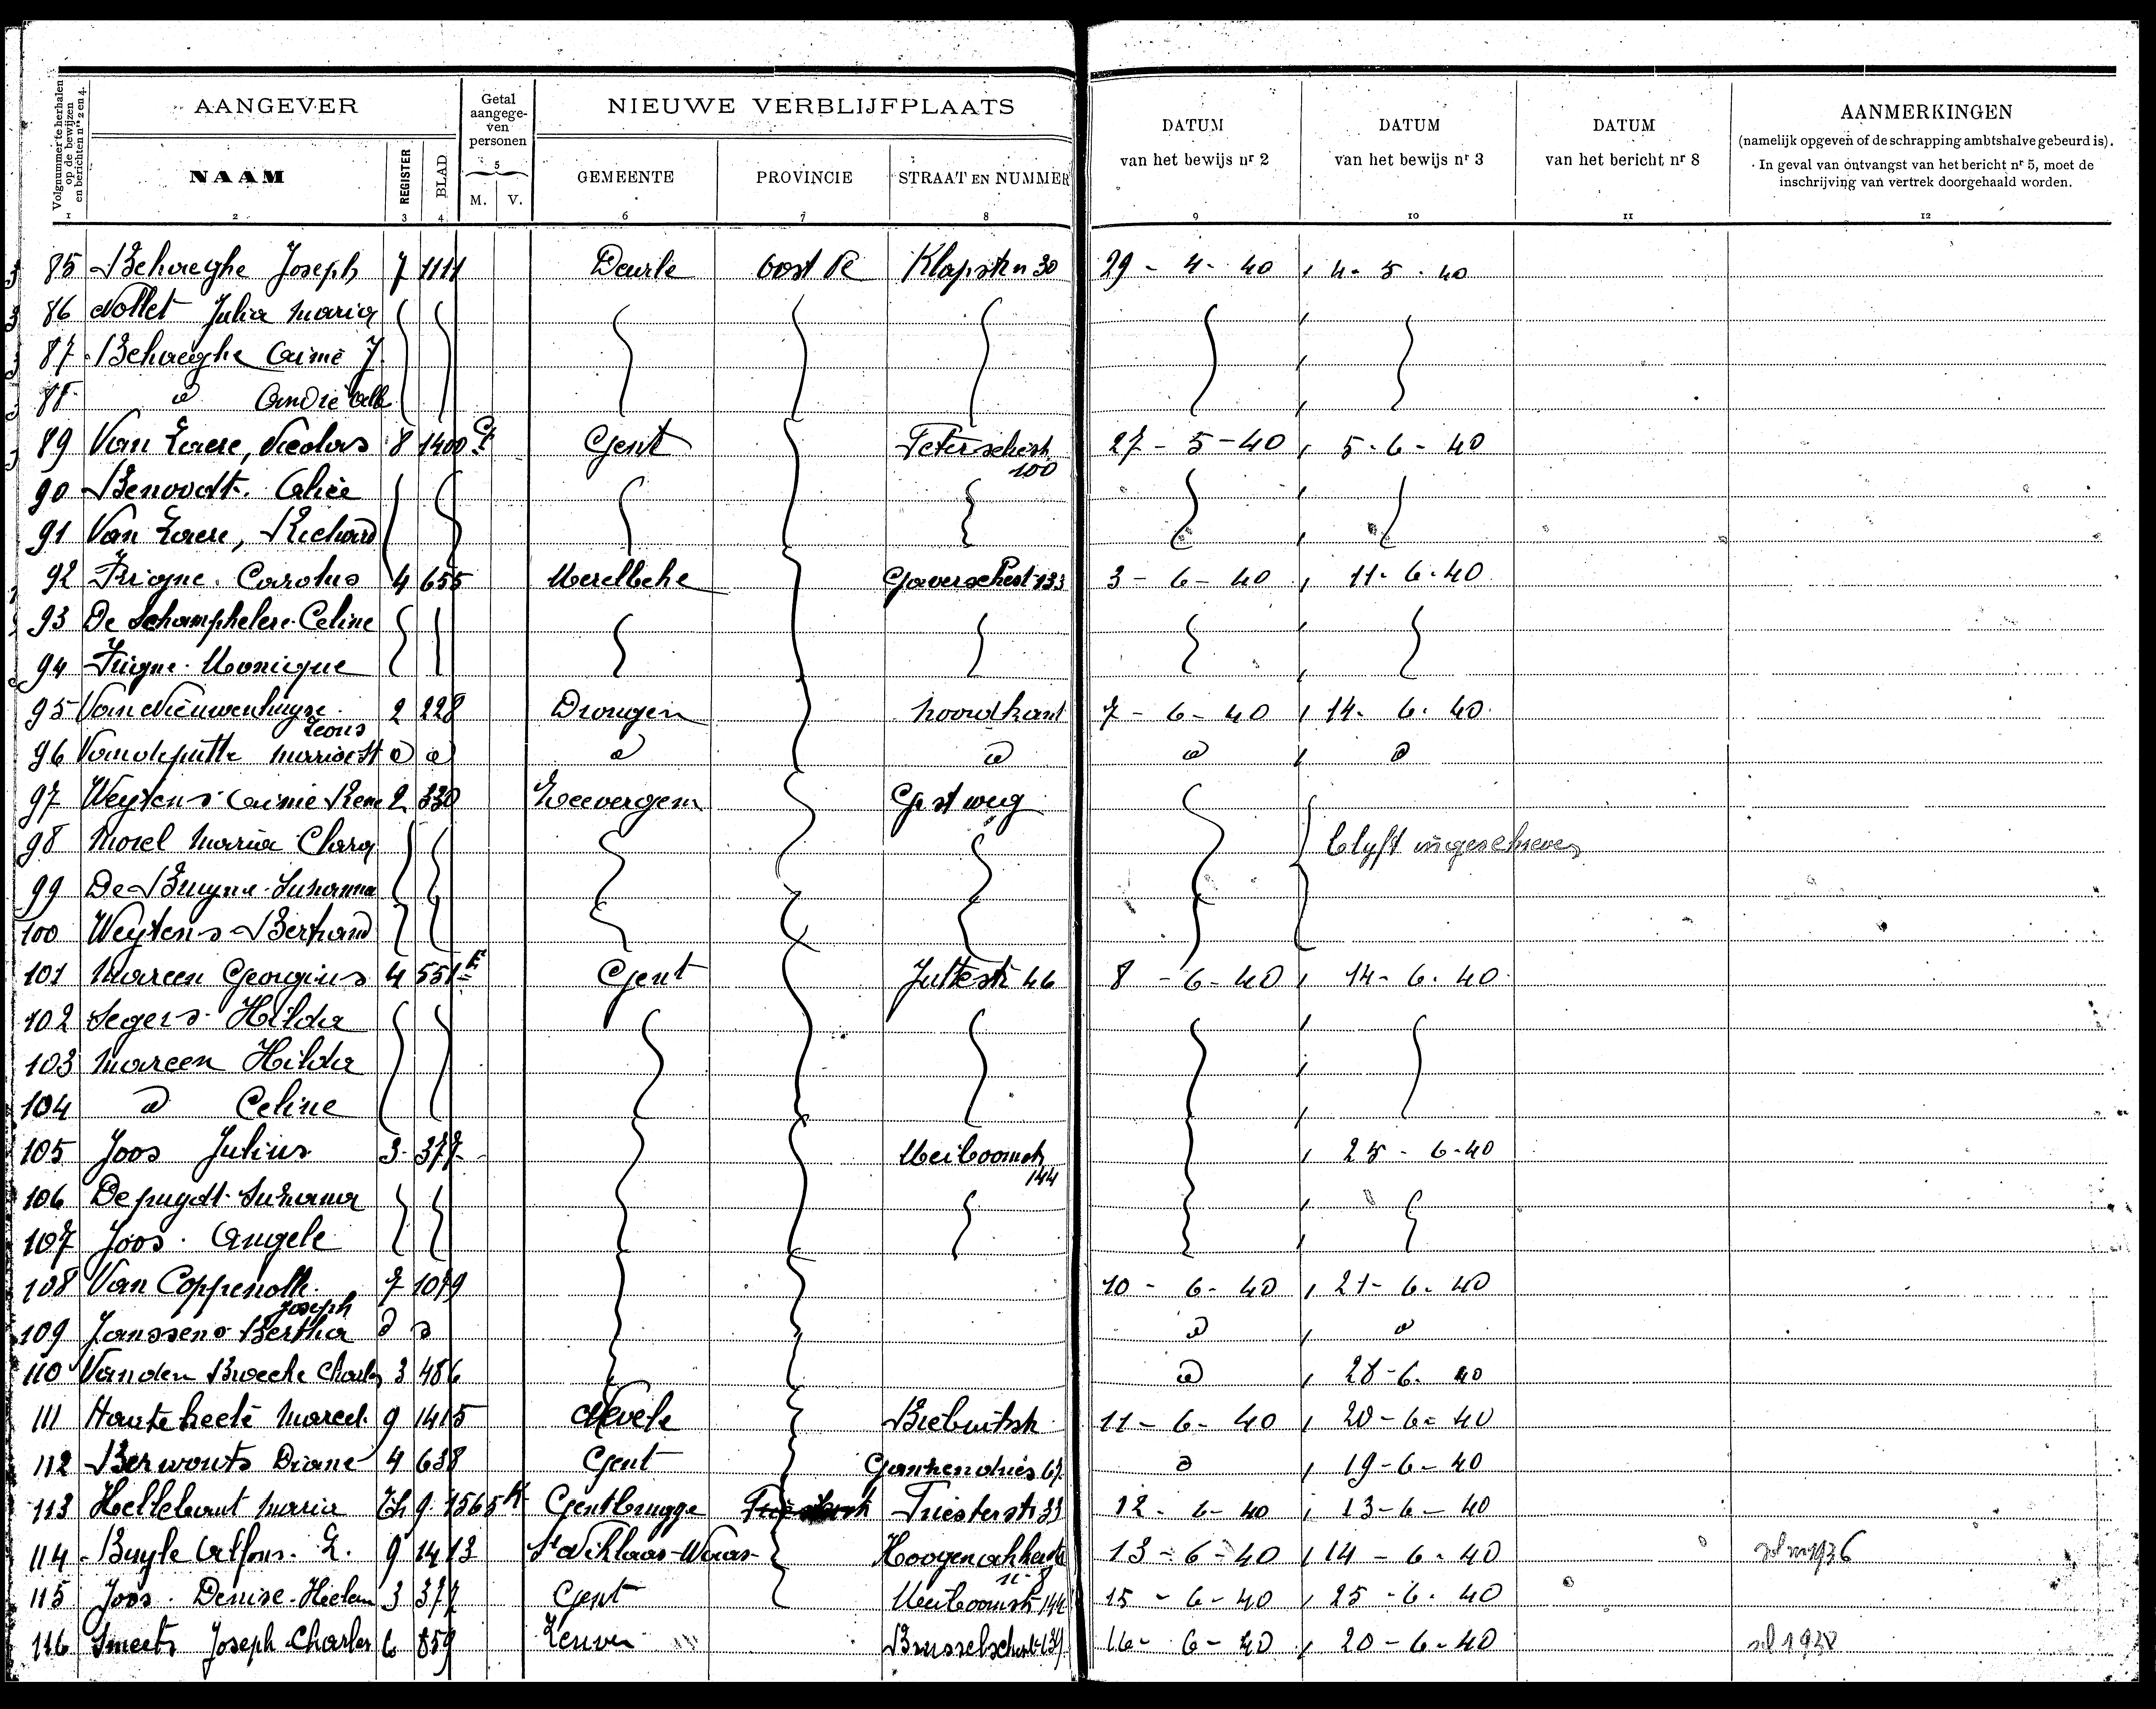 AANGEVER
Getal aangege-ven personen
NIEUWE VERBLIJFPLAATS
DATUM van het bewijs nr 2
DATUM van het bewijs nr 3
DATUM van het bericht nr 8
AANMERKINGEN
(namelijk opgeven of de schrapping ambtshalve gebeurd is).
In geval van ontvangst van het bericht nr 5, moet de
inschrijving van vertrek doorgehaald worden.
Volgnummer te herhalen op de bewijzen en berichten nrs 2 en 4.
NAAM
REGISTER
BLAD
5
M. V.
GEMEENTE
PROVINCIE
STRAAT EN NUMMER
1 2 3 4 6 7 8 9 10 11 12
85 Behaeghe Joseph 7 1111 Deurle Oost Klapstr n 30 29 - 4 - 40 4 - 5 - 40
86 Nollet Julia Maria
87 Behaeghe Aimé J.
88 d André Alb
89 Van Laere, Nicolas 8 1400 Gent 100 27 - 5 - 40 5 - 6 - 40
90 Benoodt. Alice
91 Van Laere, Richard
92 Frigne. Carolus 4 655 Merelbeke 133 3 - 6 - 40 11 - 6 - 40
93 De Schamphelere Celine
94 Frigne. Monique
95 Van Nieuwenhuyse Leons 2 228 Drongen Noordkant 7 - 6 - 40 14 - 6 - 40
96 Vandeputte d d d d d d
97 Weytens Aimé René 2 330 Zeevergem Gest weg
98 Morel Maria Clara blyft ingeschreven
99 De Bruyne Suzanna
100 Weytens Bertrand
101 Mareen Georgius 4 551 Gent Jultestr 46 8 - 6 - 40 14 - 6 - 40
102 Segers Hilda
103 Mareen Hilda
104 d Celine
105 Joos Julius 3 377 Meiboomstr 144 25 - 6 - 40
106 Depuydt Suzanna
107 Joos. Angele
108 Van Coppenolle Joseph 7 1079 10 - 6 - 40 21 - 6 - 40
109 Janssens Bertha d d d d
110 Vanden Broecke Charles 3 486 d 28 - 6 - 40
111 Hautekeete Marcel 9 1415 Nevele Biebuitstr 11 - 6 - 40 20 - 6 - 40
112 Berwouts Diane 4 638 Gent d 19 - 6 - 40
113 Hellebaut Maria 9 1565 Gentbrugge Triesterstr 33 12 - 6 - 40 13 - 6 - 40
114 Buyle Alfons. L. 9 1413 St Niklaas-Waas 13 - 6 - 40 14 - 6 - 40
115 Joos. Denise 3 377 Gent Meiboomstr 144 15 - 6 - 40 25 - 6 - 40
116 Smeets Joseph Charles 6 859 Leuven 16 - 6 - 40 20 - 6 - 40